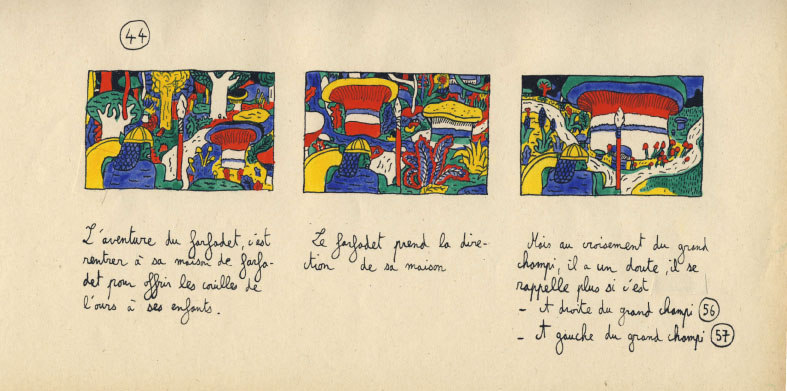 44
L'aventure du farfadet, c'est
rentrer à sa maison de farfa-
det pour offrir les couilles de
l'ours à ses enfants.
Le farfadet prend la dire-
ction de sa maison
Mais au croisement du grand
champi, il a un doute, il se
rappelle plus si c'est
- A droite du grand champi 56
- A gauche du grand champi 57